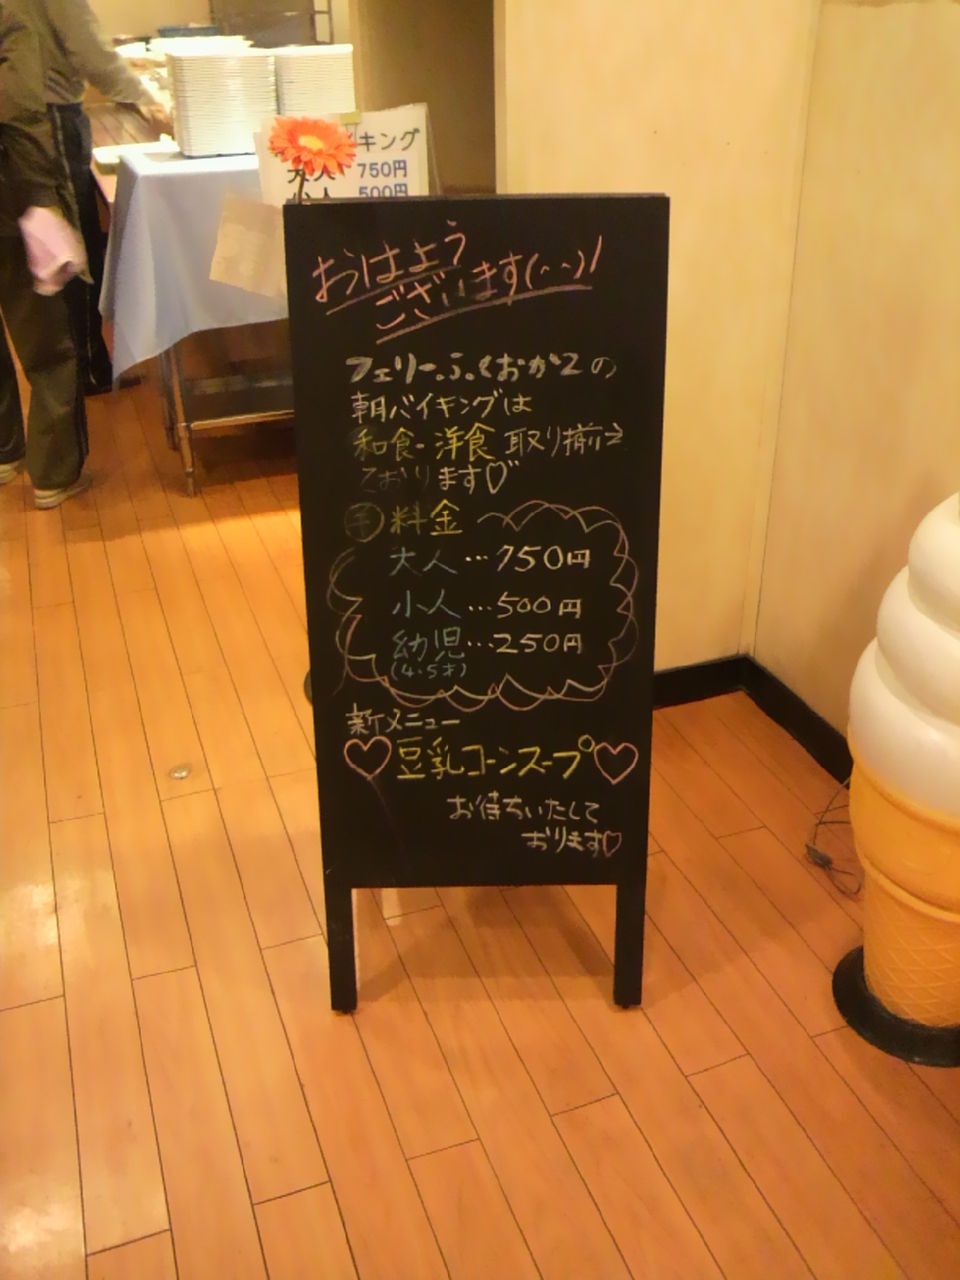 キング
大人 750円
小人 500円
おはよう
ございます(^-^)/
フェリーふくおか2の
朝バイキングは
和食・洋食取り揃え
ております♡
料金
大人…750円
小人…500円
幼児…250円
(4・5才)
新メニュー
♡豆乳コーンスープ♡
お待ちいたして
おります♡